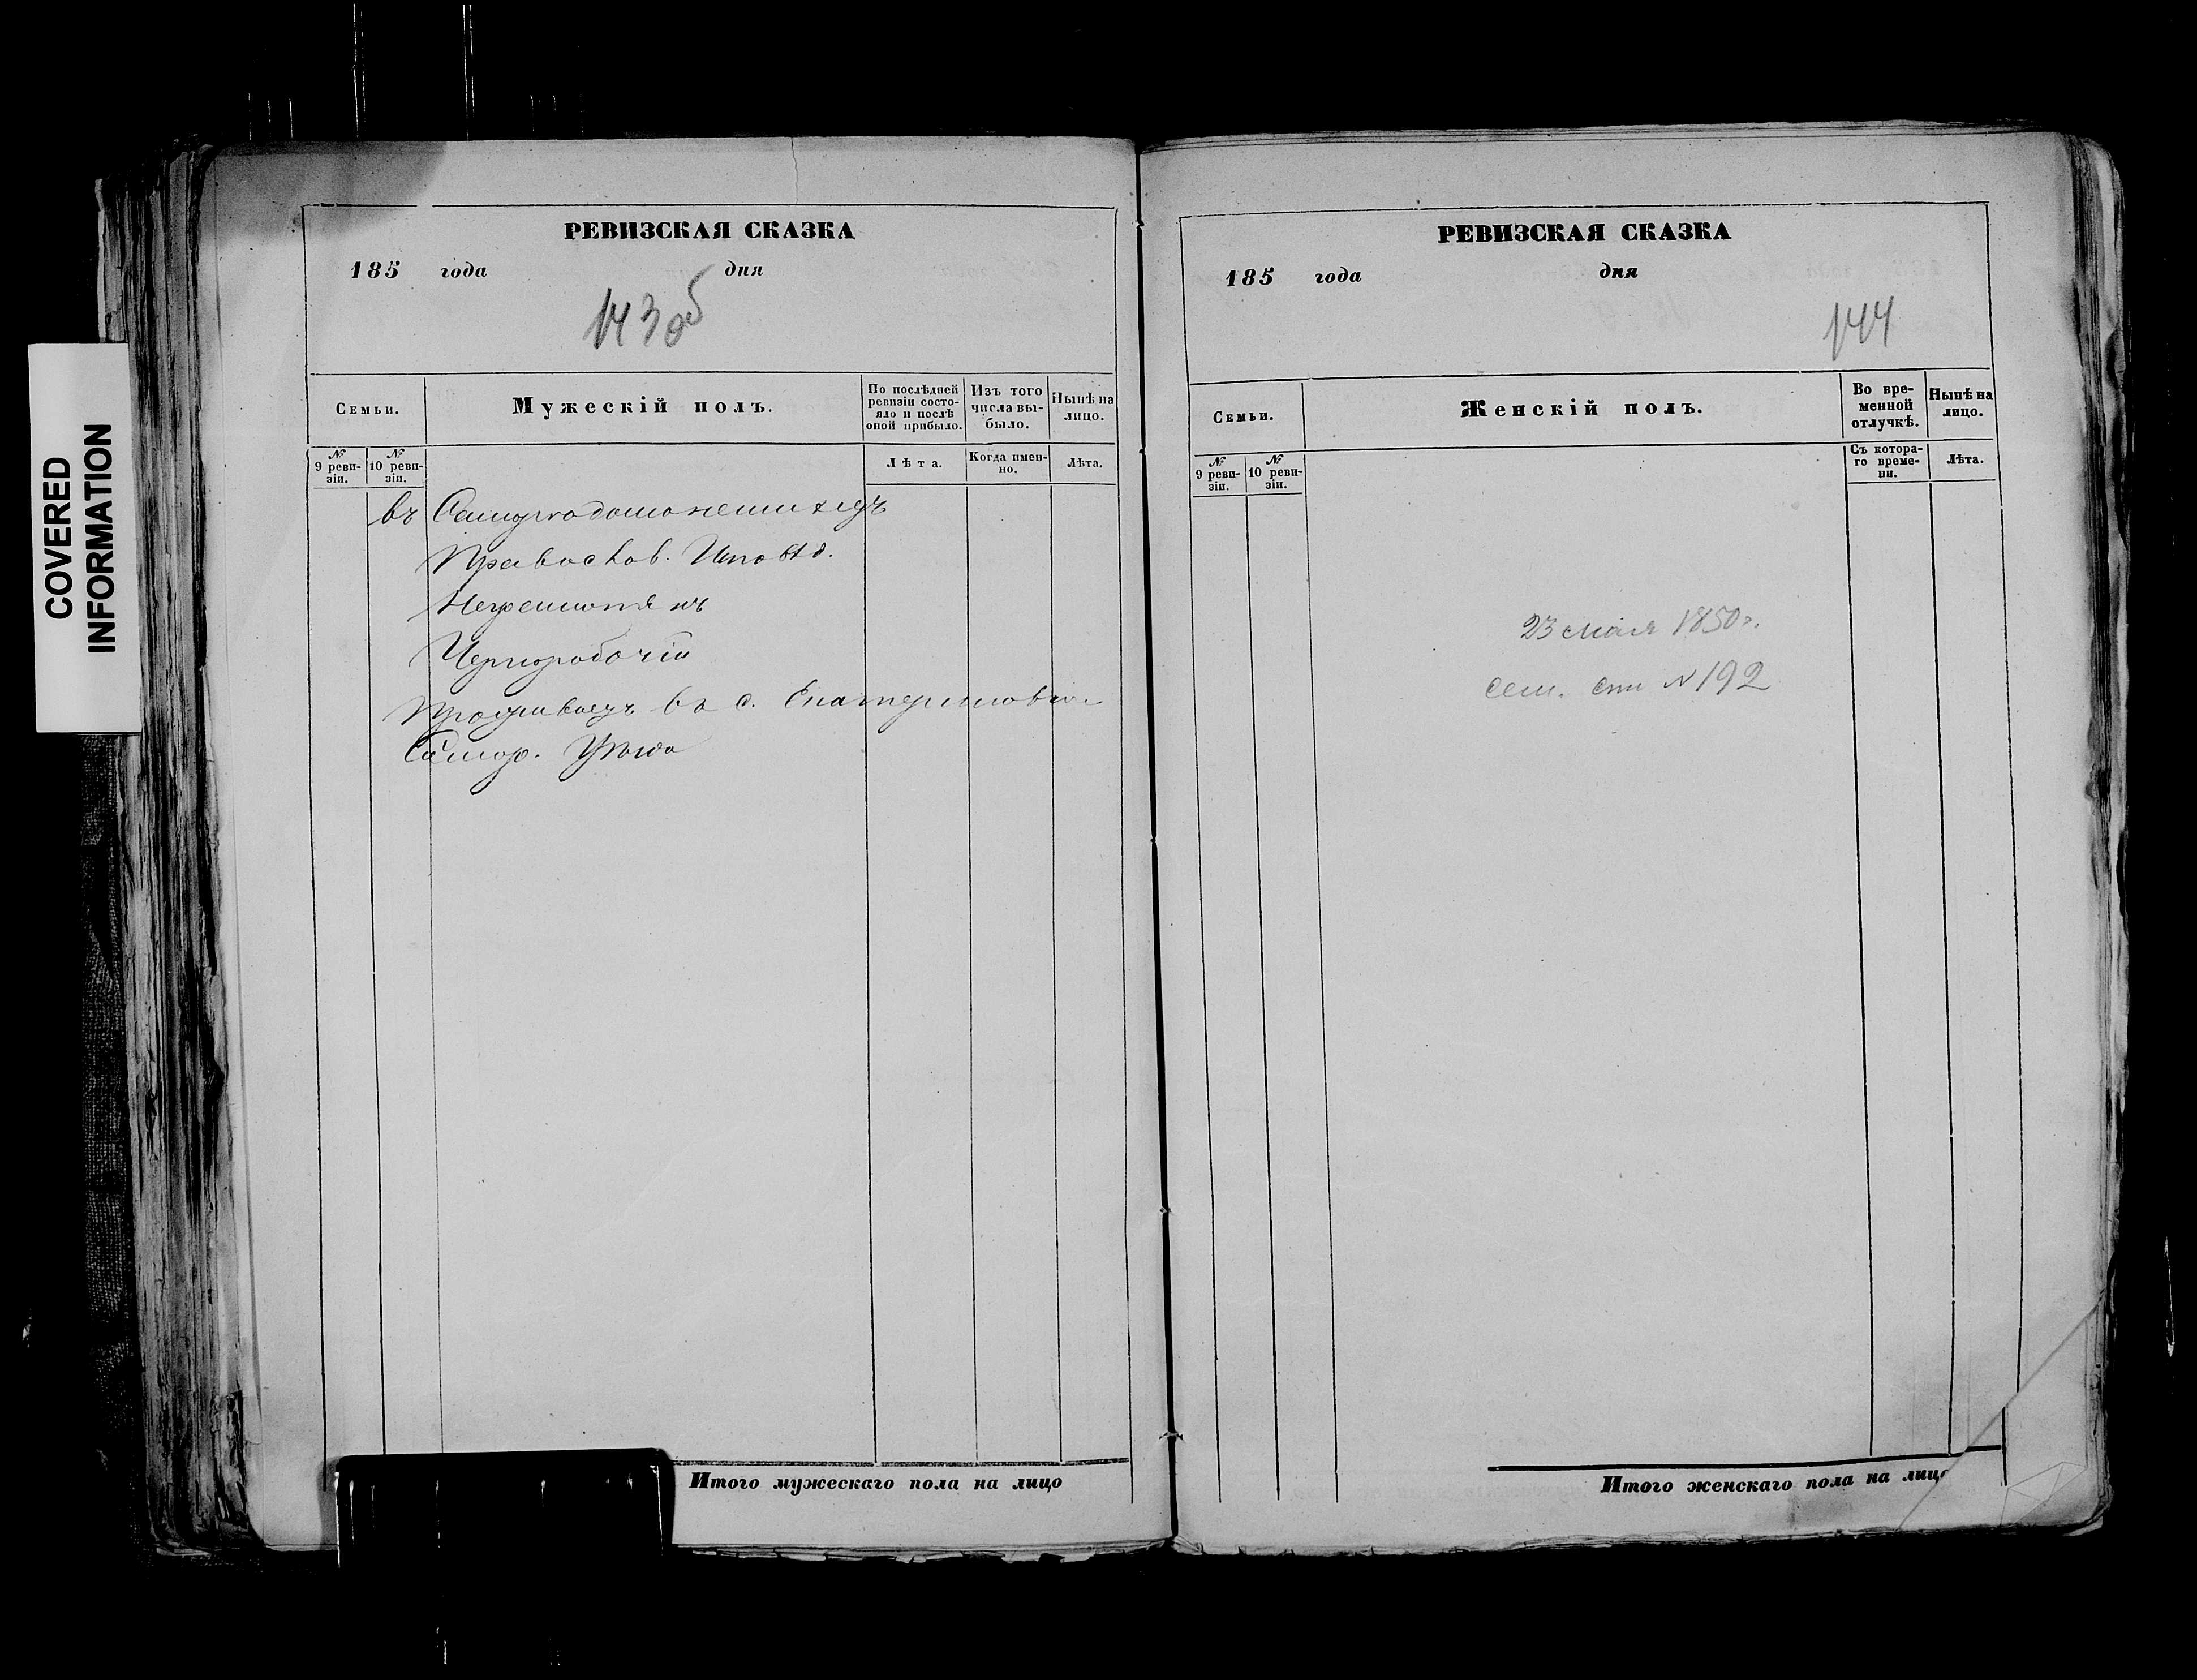 COVERED
INFORMATION
РЕВИЗСКАЯ СКАЗКА
185 года дня
143 об
Семьи.
Мужескій полъ.
По послѣдней
ревизіи состо-
яло и послѣ
оной прибыло.
Изъ того
числа вы-
было.
Нынѣ на
лицо.
№
9 реви-
зіи.
№
10 реви-
зіи.
Лѣта.
Когда имен-
но.
Лѣта.
въ
Православ. Исповѣд.
Неграмотенъ
Чернорабочій
Проживаетъ въ с. Екатериновкѣ
Самар. Уѣзда
Итого мужескаго пола на лицо
РЕВИЗСКАЯ СКАЗКА
185 года дня
144
Семьи.
Женскій полъ.
Во вре-
менной
отлучкѣ.
Нынѣ на
лицо.
№
9 реви-
зіи.
№
10 реви-
зіи.
Съ котора-
го време-
ни.
Лѣта.
23 мая 1850 г.
сем. сп. № 192
Итого женскаго пола на лицо